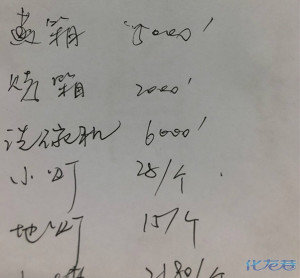 蒸箱 5000'
烤箱 2000'
洗碗机 6000'
小灯 28/个
地灯 15/个
2180/个
化龙巷